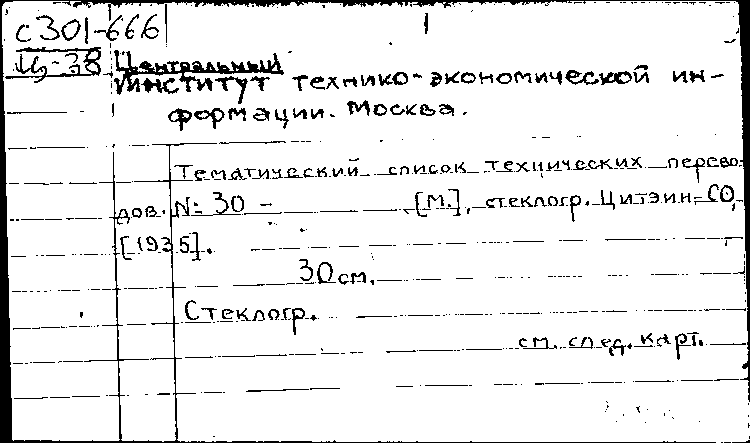 с301-666 1
Ц-38 Центральный
институт технико-экономической ин-
формации. Москва.
Тематический список технических перево-
дов. N: 30 - [М.], стеклогр. Цитэин-СО,
[1935].
30 см.
Стеклогр.
см. след. карт.